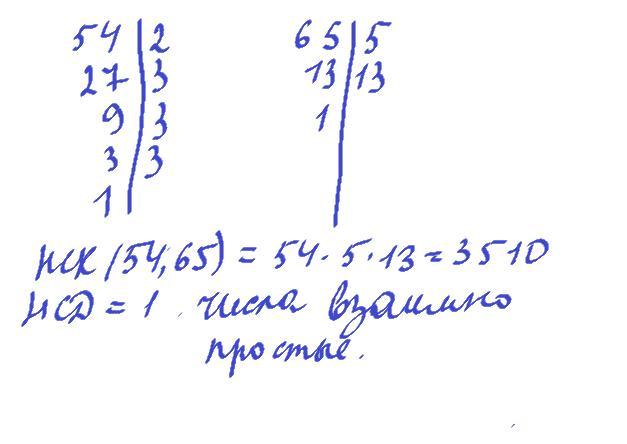 54 | 2
27 | 3
9 | 3
3 | 3
1 |
65 | 5
13 | 13
1 |
НСК (54,65) = 54 · 5 · 13 = 3510
НСД = 1. числа взаимно
простые.